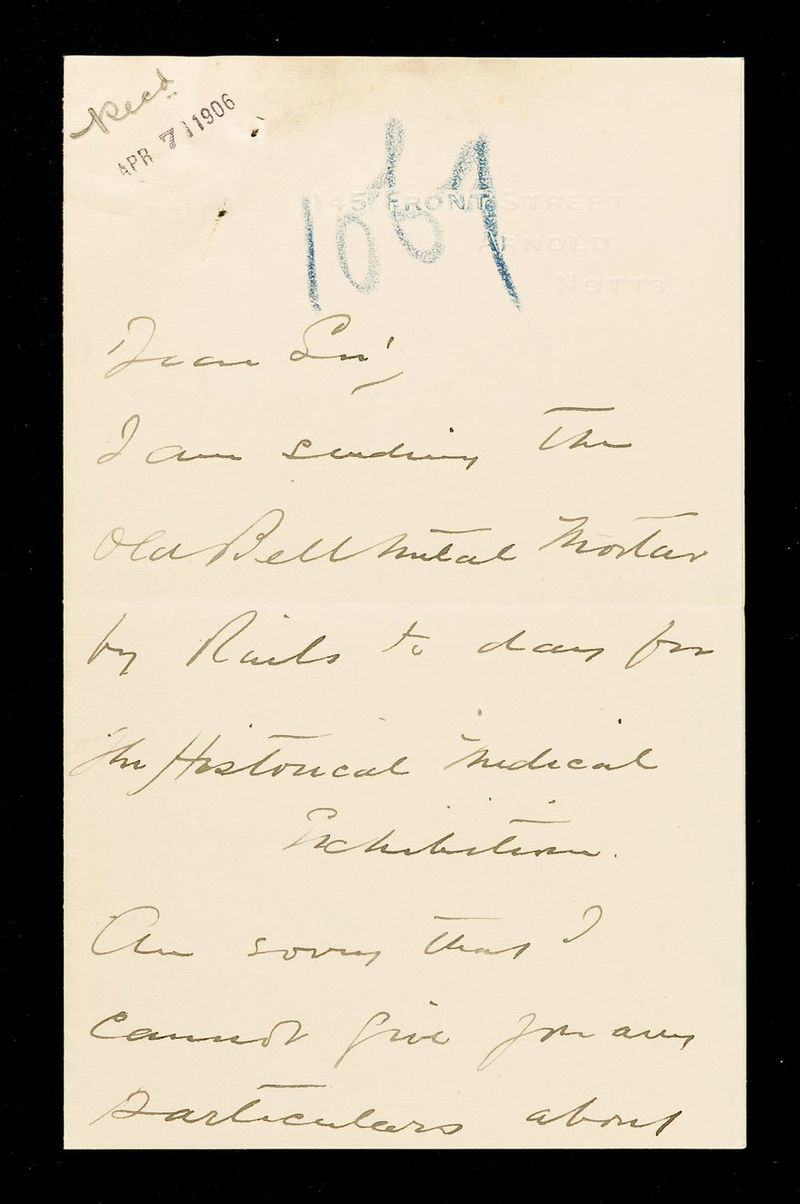 Recd.
APR 7 1906
1067
145 FRONT STREET,
ARNOLD,
NOTTS
Dear Sir,
I am sending the
Old Bell Metal Mortar
by Rails to day for
the Historical Medical
Exhibition.
Am sorry that I
cannot give you any
particulars about